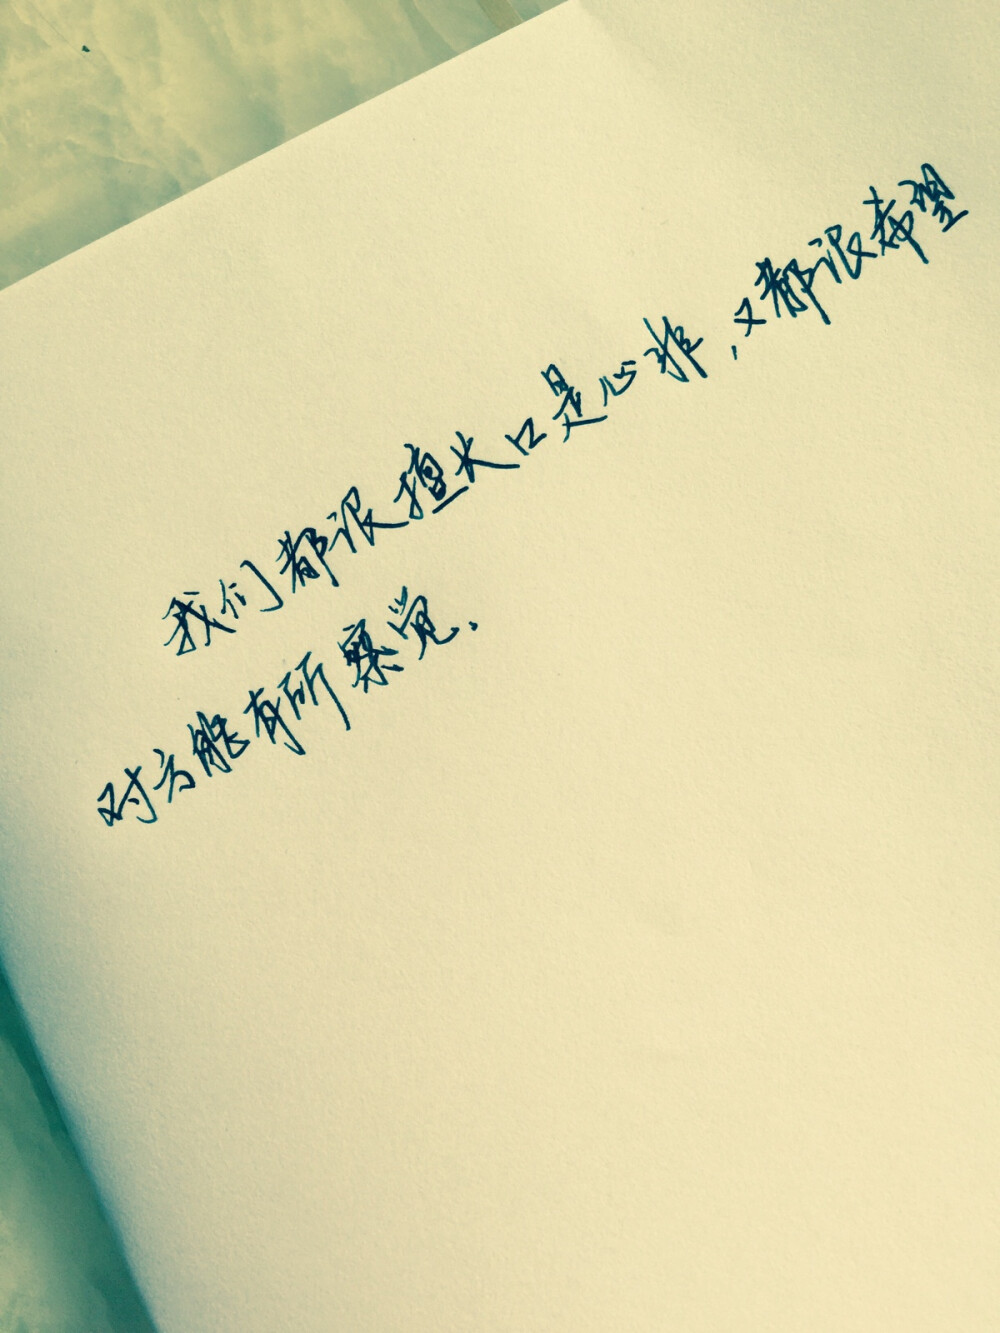 我们都很擅长口是心非,又都很希望
对方能有所察觉.